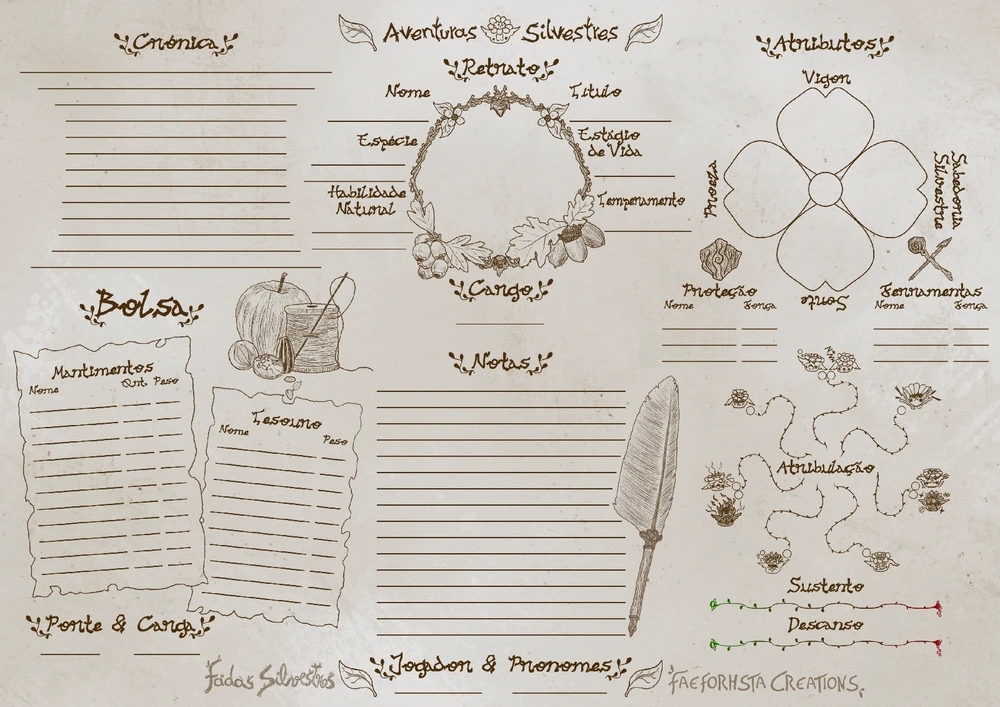 Aventuras Silvestres
Crônica
Retrato
Nome
Título
Espécie
Estágio
de Vida
Habilidade
Natural
Temperamento
Cargo
Atributos
Vigor
Proeza
Sabedoria
Silvestre
Sorte
Proteção
Nome Força
Ferramentas
Nome Força
Bolsa
Mantimentos
Nome Qnt. Peso
Tesouro
Nome Peso
Porte & Carga
Notas
Atribulação
Sustento
Descanso
Jogador & Pronomes
Fadas Silvestres
FAEFORHSTA CREATIONS.